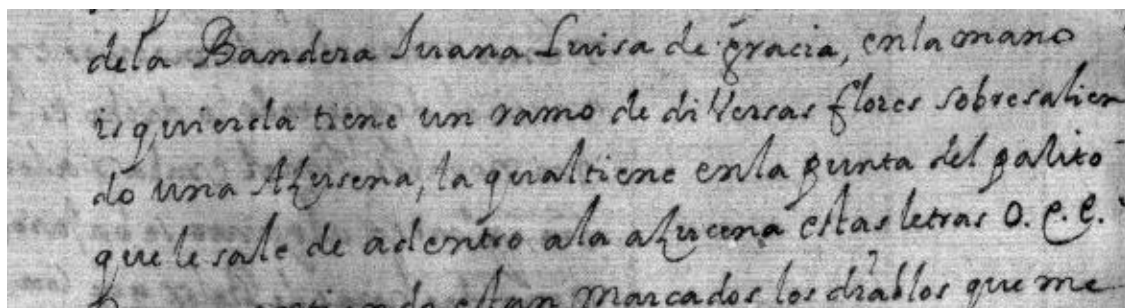 dela Bandera Juana Luisa de gracia, enlamano
isquierda tiene un ramo de diversas flores sobresalien
do una Asusena, la qualtiene enla punta del palito
que le sale de adentro ala asucena estas letras O. C. C.
estan marcados los diablos que me